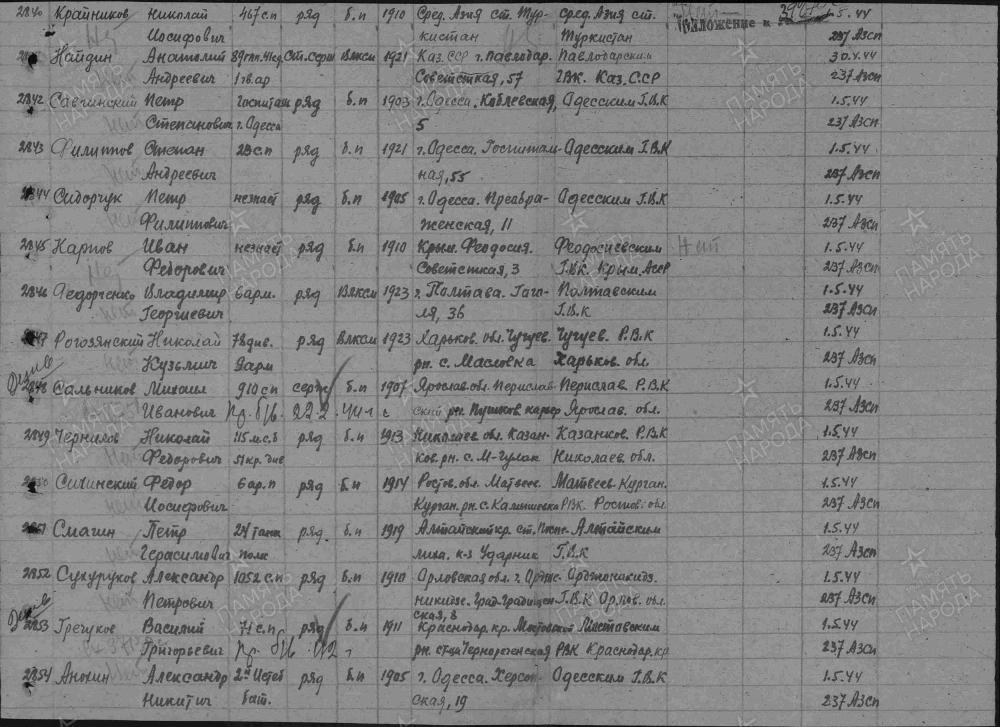 2840 Крайников Николай 467 с.п ряд б.п 1910 Сред. Азия ст. Тур- Сред. Азия ст. 1.5.44
Иосифович кистан Туркистан 237 Азсп
Найдин Анатолий Ст. Серж Влксм 1921 Каз. ССР г. Павлодар. Павлодарским 30.4.44
Андреевич 1 гв. ар Советсткая, 57 ГВК. Каз. С.С.Р 237 Азсп
2842 Савчинский Петр Госпиталь ряд б.п 1903 г. Одесса. Коблевская, Одесским Г.В.К 1.5.44
Степанович г. Одесса 5 237 Азсп
2843 Филиппов Степан 23 с.п ряд б.п 1921 г. Одесса. Госпиталь- Одесским Г.В.К 1.5.44
Андреевич ная, 55 237 Азсп
2844 Сидорчук Петр незнает ряд б.п 1905 г. Одесса. Преобра- Одесским Г.В.К 1.5.44
Филиппович женская, 11 237 Азсп
2845 Карпов Иван незнает ряд б.п 1910 Крым. Феодосия. Феодосиевским Нет 1.5.44
Федорович Советсткая, 3 Г.В.К. Крым. АССР 237 Азсп
2846 Федорченко Владимир 6 арм. ряд Влксм 1923 г. Полтава. Гого- Полтавским 1.5.44
Георгиевич ля, 36 Г.В.К 237 Азсп
2847 Рогозянский Николай 78 див. ряд Влксм 1923 Харьков. обл. Чугуев. Чугуев. Р.В.К 1.5.44
Кузьмич 9 арм рн. с. Масловка Харьков. обл 237 Азсп
2848 Сальников Михаил 910 сп серж б.п 1907 Ярослав. обл. Переслав- Переслав. Р.В.К 1.5.44
Иванович Пр. б/в. 222 ский рн. Пушков карьер Ярослав. обл. 237 Азсп
2849 Чернилов Николай 115 м.с.б ряд б.п 1913 Николаев. обл. Казан- Казанков. Р.В.К 1.5.44
Федорович 51 кр. див ков. рн. с. М-Гулак Николаев. обл. 237 Азсп
2850 Сичинский Федор 6 ар. п ряд б.п 1914 Ростов. обл. Матвеев. Матвеев Курган. 1.5.44
Иосифович Курган. рн. с. Калиновка РВК. Ростов. обл 237 Азсп
2851 Смагин Петр 24 танк ряд б.п 1919 Алтайский кр. ст. Алтайским 1.5.44
Герасимович полк к-з Ударник Г.В.К 237 Азсп
2852 Сухоруков Александр 1052 с.п ряд б.п 1910 Орловская обл. г. Ордж- Орджоникидз. 1.5.44
Петрович никидзе. Г.В.К Орлов. обл. 237 Азсп
ская, 8
2853 Гречуков Василий 71 с.п ряд б.п 1911 Краснодар. кр. Мостовской Мостовским 1.5.44
Григорьевич Пр. б/в рн. ст-ца РВК Краснодар. кр 237 Азсп
2854 Анохин Александр ряд б.п 1905 г. Одесса. Херсон- Одесским Г.В.К 1.5.44
Никитич бат. ская, 19 237 Азсп